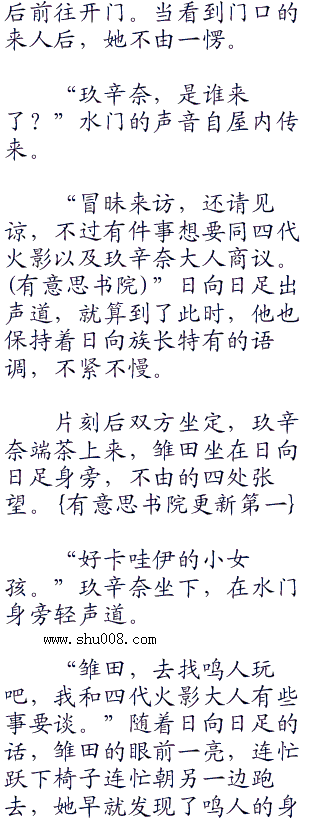 后前往开门。当看到门口的
来人后，她不由一愣。
“玖辛奈，是谁来
了？”水门的声音自屋内传
来。
“冒昧来访，还请见
谅，不过有件事想要同四代
火影以及玖辛奈大人商议。
(有意思书院)”日向日足出
声道，就算到了此时，他也
保持着日向族长特有的语
调，不紧不慢。
片刻后双方坐定，玖辛
奈端茶上来，雏田坐在日向
日足身旁，不由的四处张
望。{有意思书院更新第一}
“好卡哇伊的小女
孩。”玖辛奈坐下，在水门
身旁轻声道。
www.shu008.com
“雏田，去找鸣人玩
吧，我和四代火影大人有些
事要谈。”随着日向日足的
话，雏田的眼前一亮，连忙
跃下椅子连忙朝另一边跑
去，她早就发现了鸣人的身